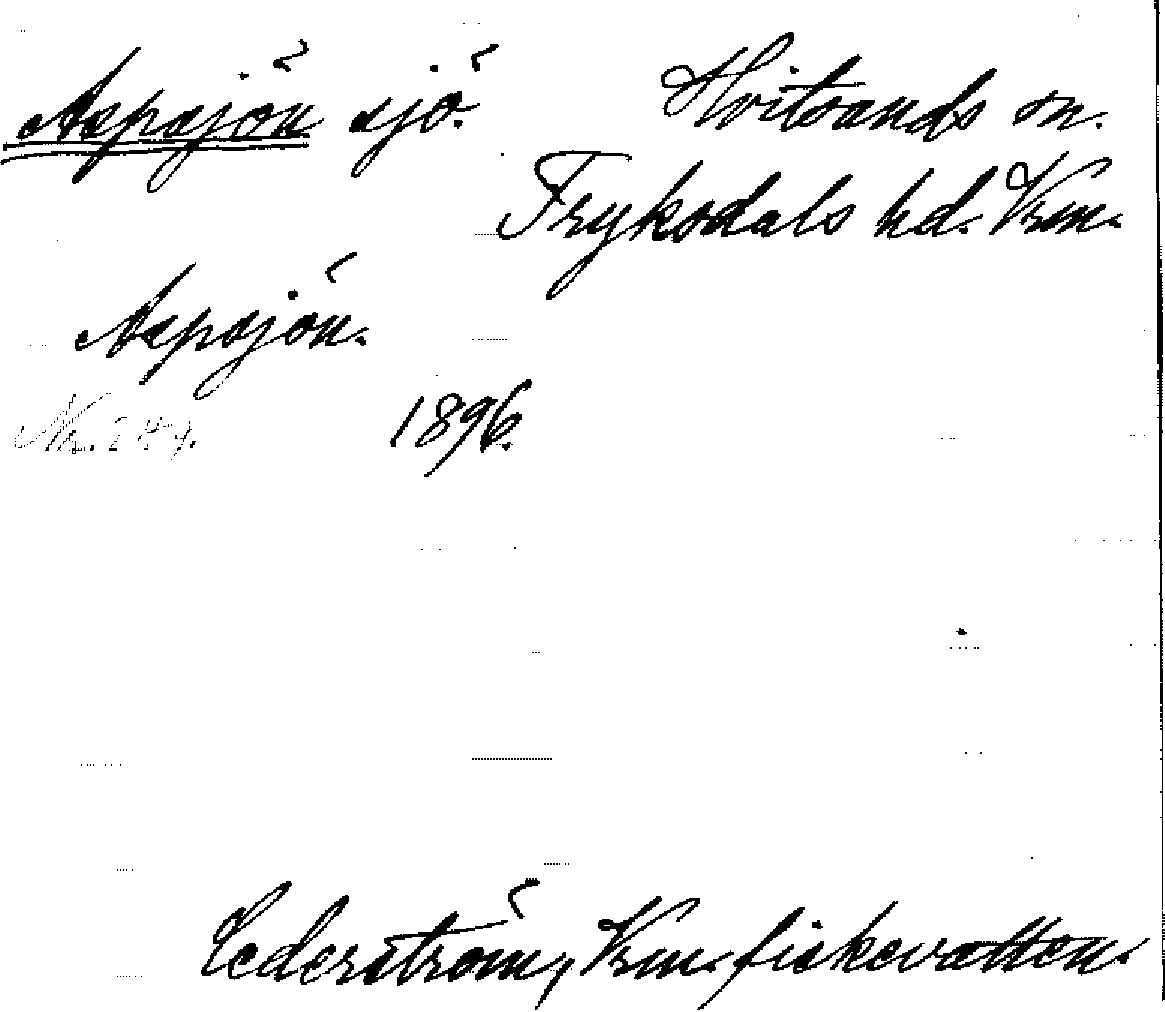 Aspsjön sjö. Hvitsands sn.
Fryksdals hd. Vrm.
Aspsjön.
Nr. 284. 1896.
Cederström, Vrm. fiskevatten.